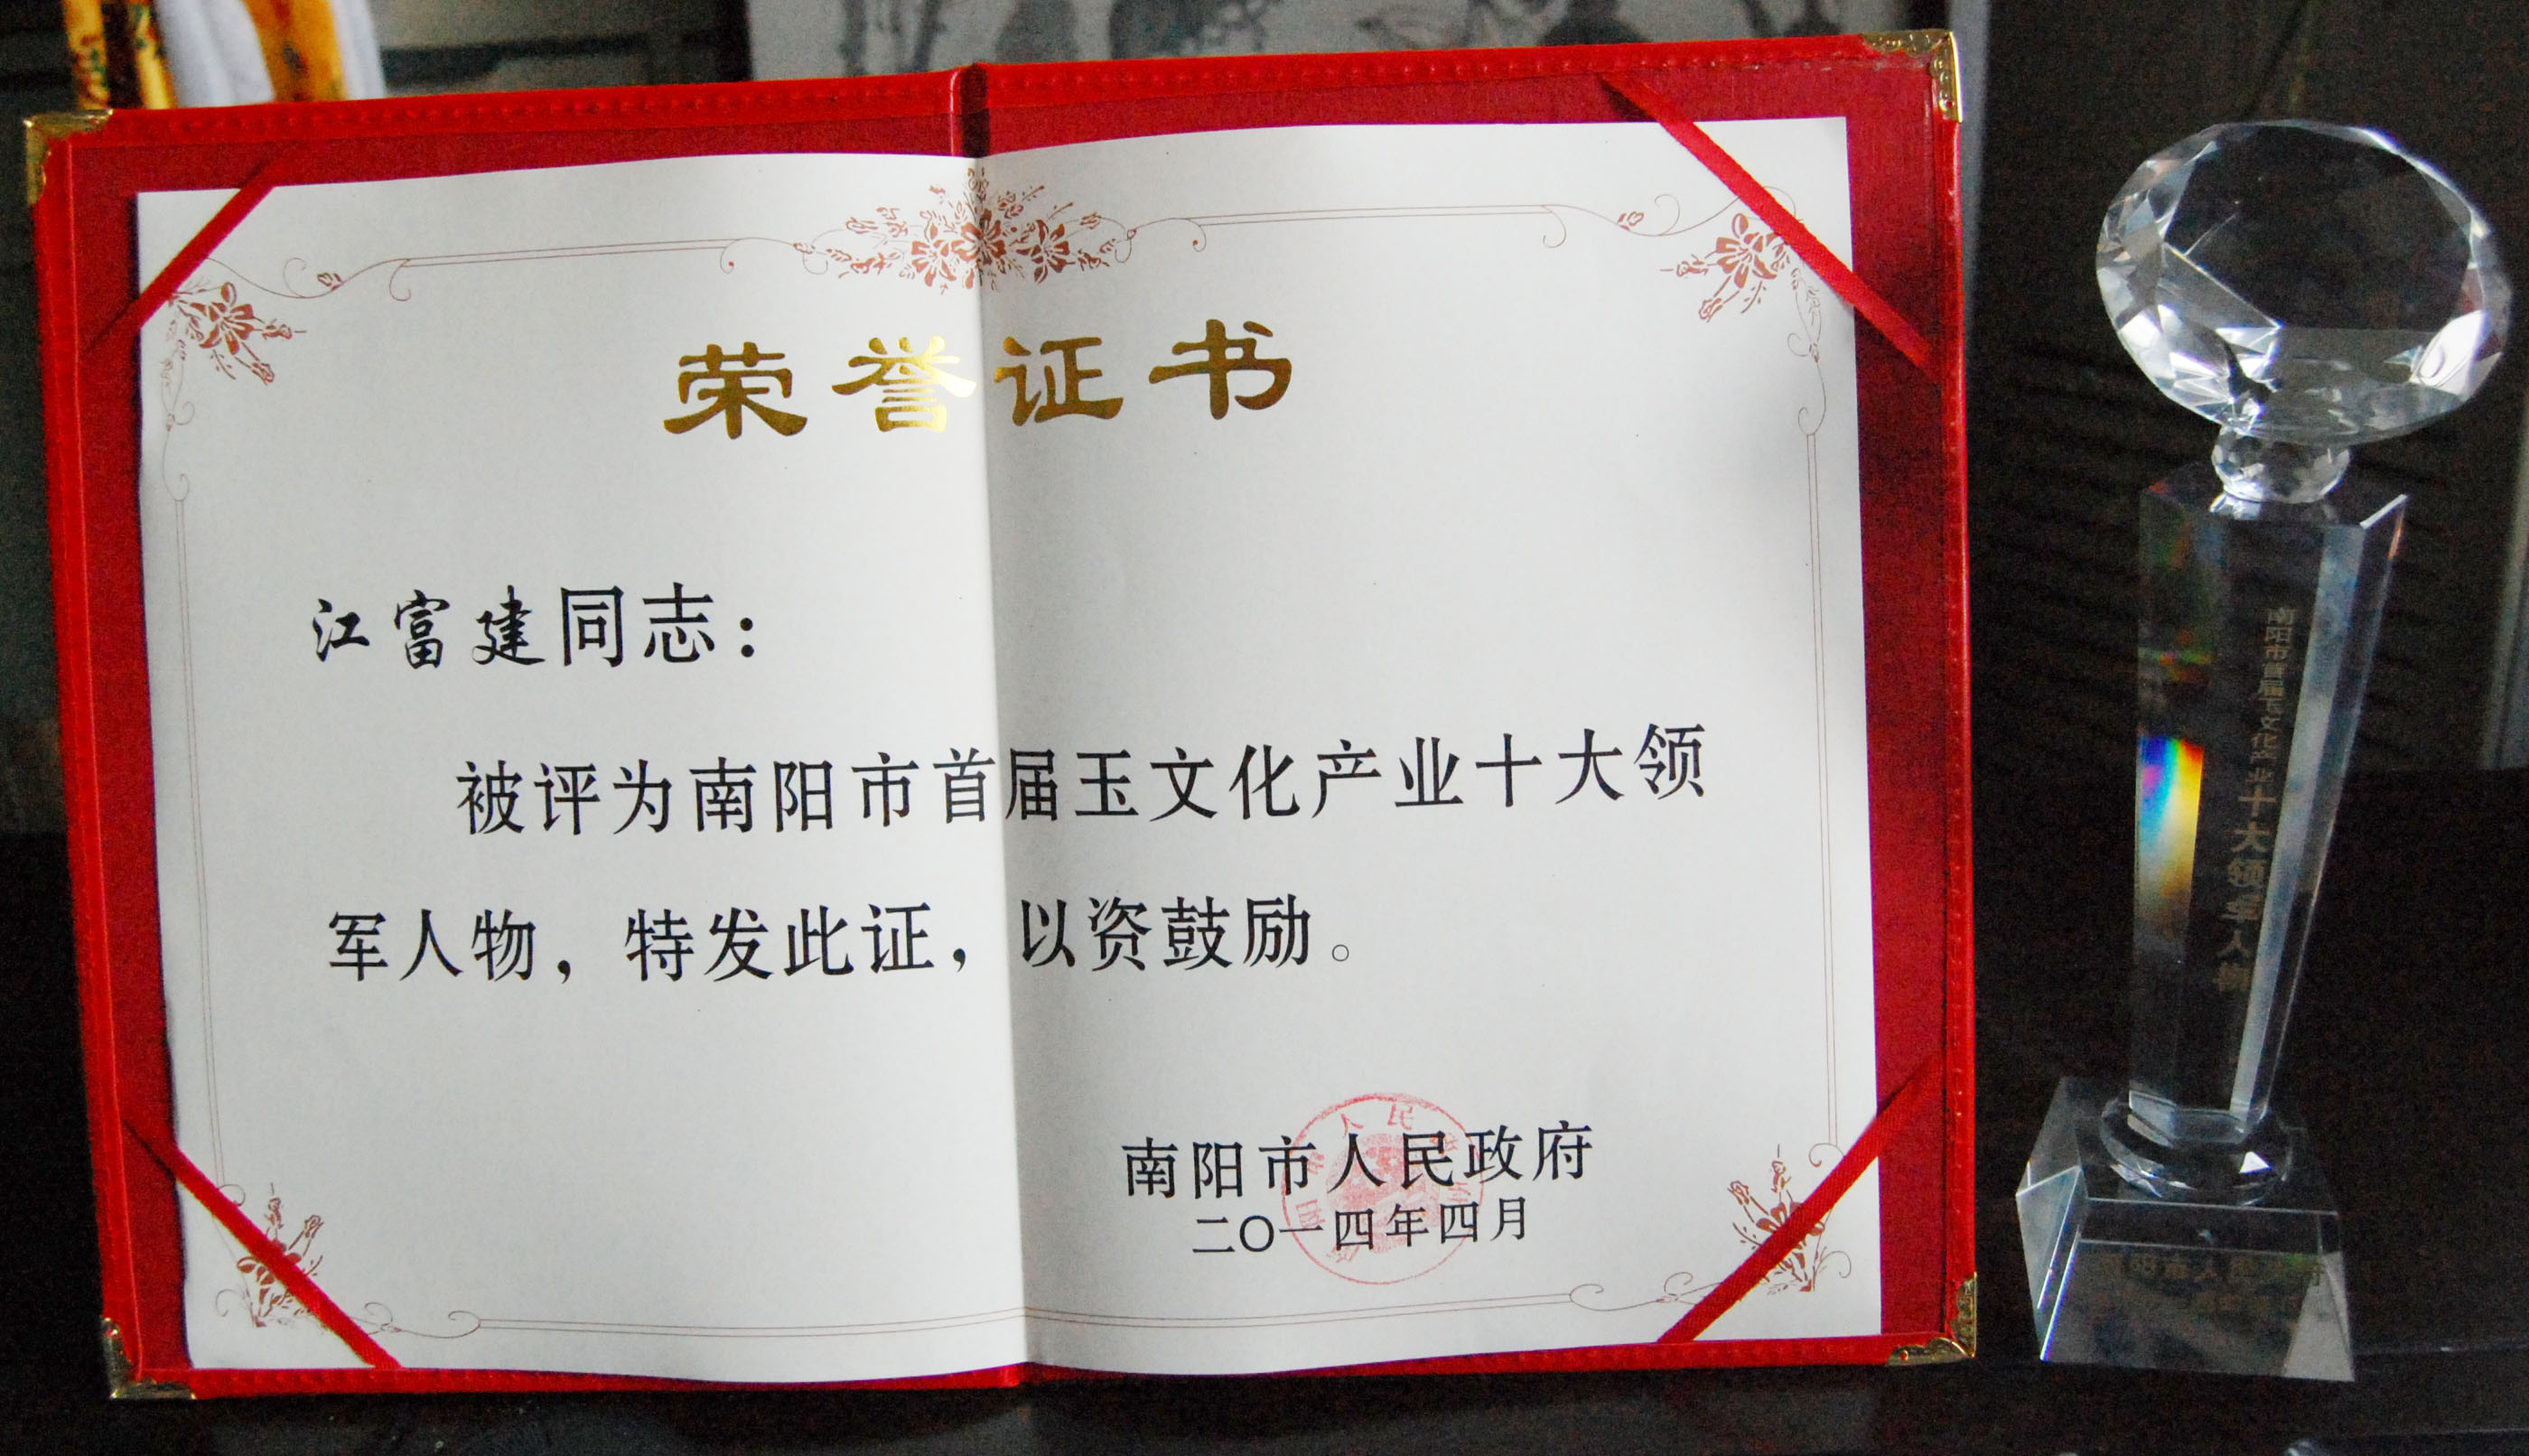 荣誉证书
江富建同志：
被评为南阳市首届玉文化产业十大领
军人物，特发此证，以资鼓励。
南阳市人民政府
二〇一四年四月
南阳市首届玉文化产业十大领军人物